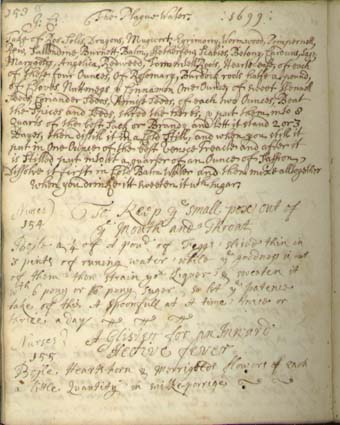 153
The Plague Water. 1699.
Take of Ros Solis, Dragons, Mugwort, Egrimony, Wormwood, Pimpernell,
Balm,
Margerets, Angelica, Tormentell Roots, of each
of these four Ounces, Of Rosemary, Burdock roots half a pound,
of Cloves Nuttmegs & Cinnamon One Ounce of sweet Fennell
Seeds, Coriander Seeds, Annise Seeds, of each two Ounces, Beat
the Spices and Seeds, shred the herbs, & put them into 8
Quarts of the best Sack or Brandy and let it stand 2 or 3
Dayes, then distill it in a Cold Still, and when you still it
put in One Ounce of the best Venice Treacle and after it
is Stilled put into it a quarter of an Ounce of Saffron,
Dissolve it first in Cold Balm Water and then mix altogether
When you drink it sweeten it with Sugar,
Nurses
154
To Keep ye small pox out of
ye Mouth and Throat
Boyle a 4th of a pound of figgs slised thin in
3 pints of runing water while ye goodness is out
of them then strain ye Liquor & sweeten it
with 6 peny or sugar, so let ye patience
take of this a spoonfull at a time twice or
thrice a day
Nurses
155
A Glistor for an Inward
Hective fever
Boyle Hearthorn & Merrigolds flowers of each
a little Quantity in milke porrige